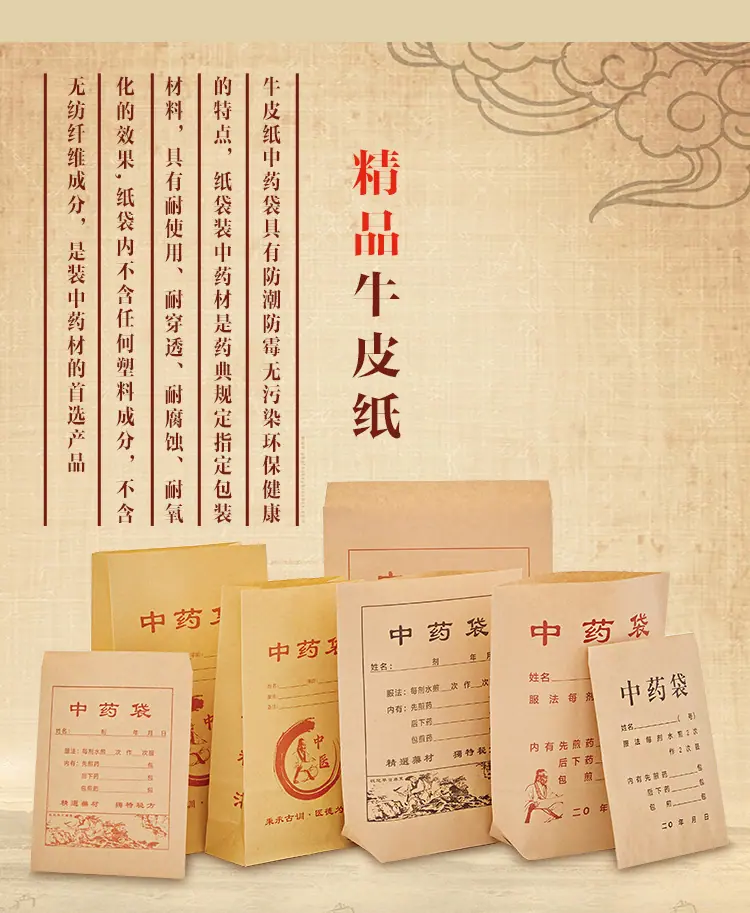 精品牛皮纸
牛皮纸中药袋具有防潮防霉无污染环保健康
的特点，纸袋装中药材是药典规定指定包装
材料，具有耐使用、耐穿透、耐腐蚀、耐氧
化的效果，纸袋内不含任何塑料成分，不含
无纺纤维成分，是装中药材的首选产品
中药袋
姓名：
年 月 日
服法：每剂水煎 次 作 次服
内有：先煎药 包
后下药 包
包煎药 包
精選藥材 獨特秘方
中药
中药袋
中医
朱永古训·医德为
中药袋
姓名： 剂 年 月
服法：每剂水煎 次 作 次
内有：先煎药
后下药
包煎药
精選藥材 獨特秘方
中药袋
姓名
服法 每剂
内有先煎药
后下药
包煎
中药袋
姓名 （ 号）
服法 每剂水煎2次
作2次服
内有先煎药 包
后下药 包
包煎 包
二0 年 月 日